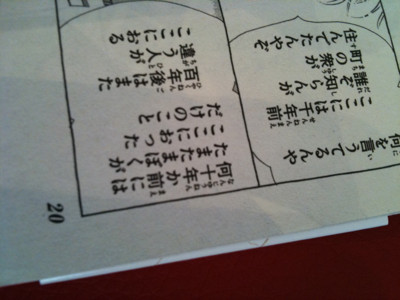 何を言うてるんや
ここには千年前
誰ぞ知らんが
町の衆が
住んでたんやぞ
何十年か前には
たまたまぼくが
ここにおった
だけのこと
百年後はまた
違う人が
ここにおる
20